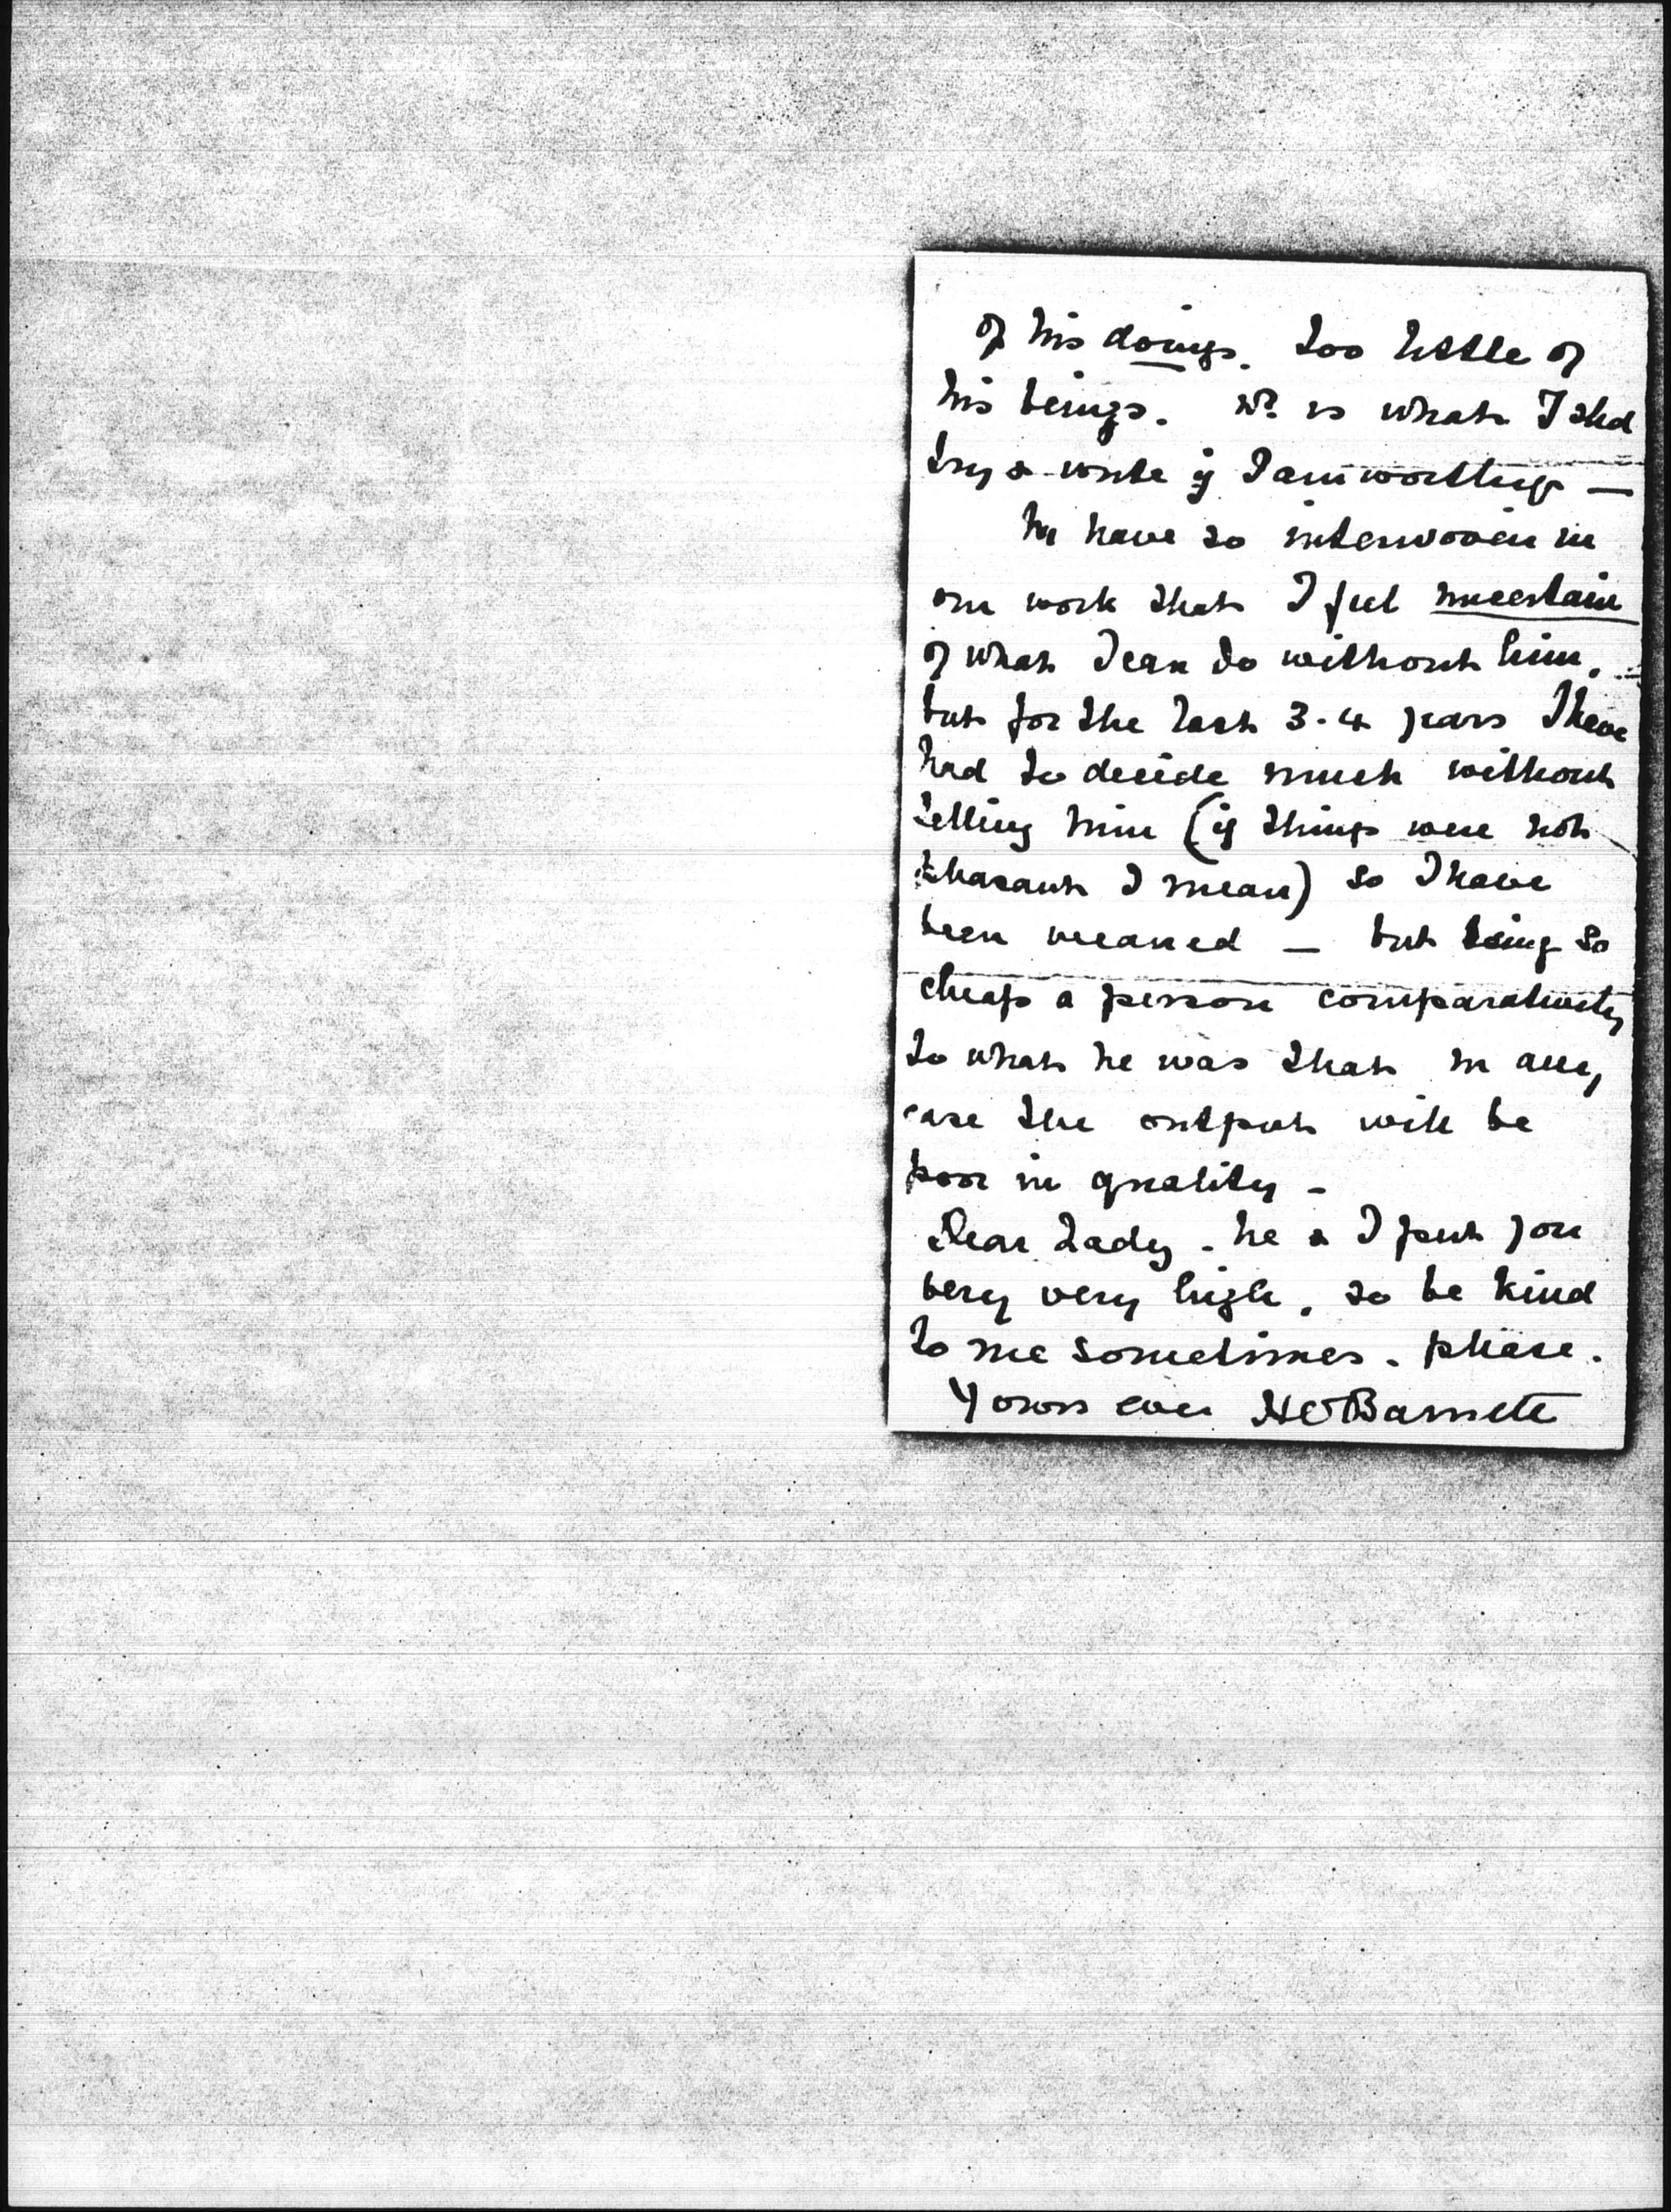 of his doings. too little of
his beings. wh is what I shd
try & write if I am worthy —
We have so interwoven in
our work that I feel uncertain
of what I can do without him.
but for the last 3.4 years I have
had to decide much without
telling him (if things were not
pleasant I mean) so I have
been weaned — but being so
cheap a person comparatively
to what he was that in any
case the output will be
poor in quality -
Dear Lady - he & I put you
very very high. so be kind
to me sometimes. please.
Yours ever HOBarnett